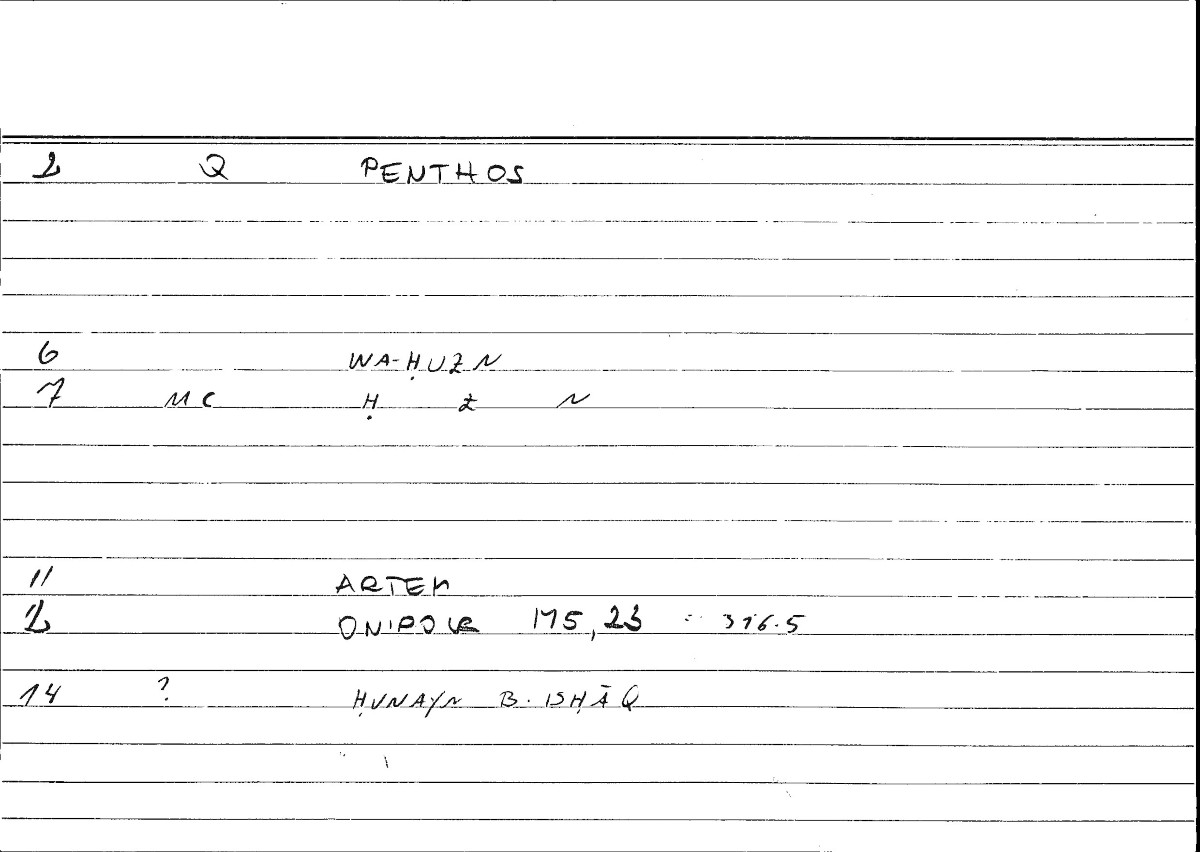 2 Q PENTHOS
6 WA-ḤUZN
7 MC Ḥ Z N
11 ARTEM
2 ONIROCR 175,23 = 316.5
14 ? ḤUNAYN B. ISḤĀQ